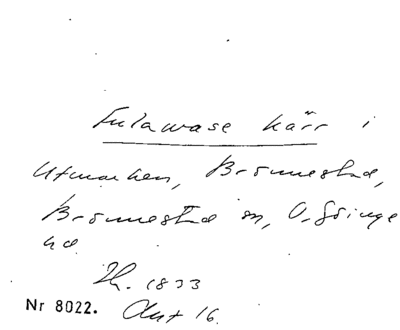 Fulawase kärr i
Utmarken, Brönnestad,
Brönnestad sn, V. Göinge
hd
Nr 8022. Akt 16.